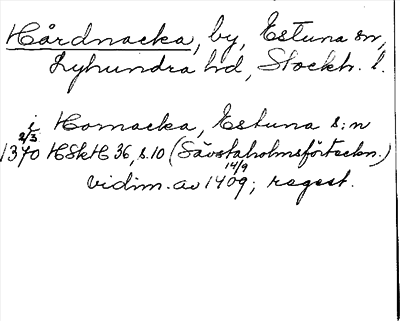 Hårdnacka, by, Estuna sn,
Lyhundra hd, Stockh. l.
i Hornacka, Estuna s:n
2/3 1370 HSkH 36, s.10 (Sävstaholmsförteckn.)
vidim. av 14/9 1409; regest.